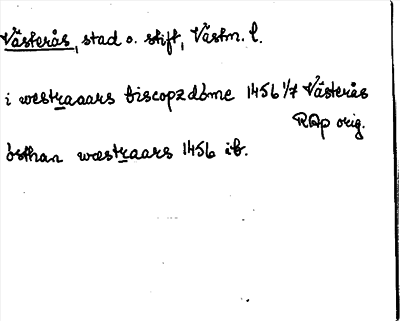 Västerås, stad o. stift, Västm. l.
i westraaars biscopzdóme 1456 1/7 Västerås
RAp orig.
ósthan wæstraars 1456 ib.